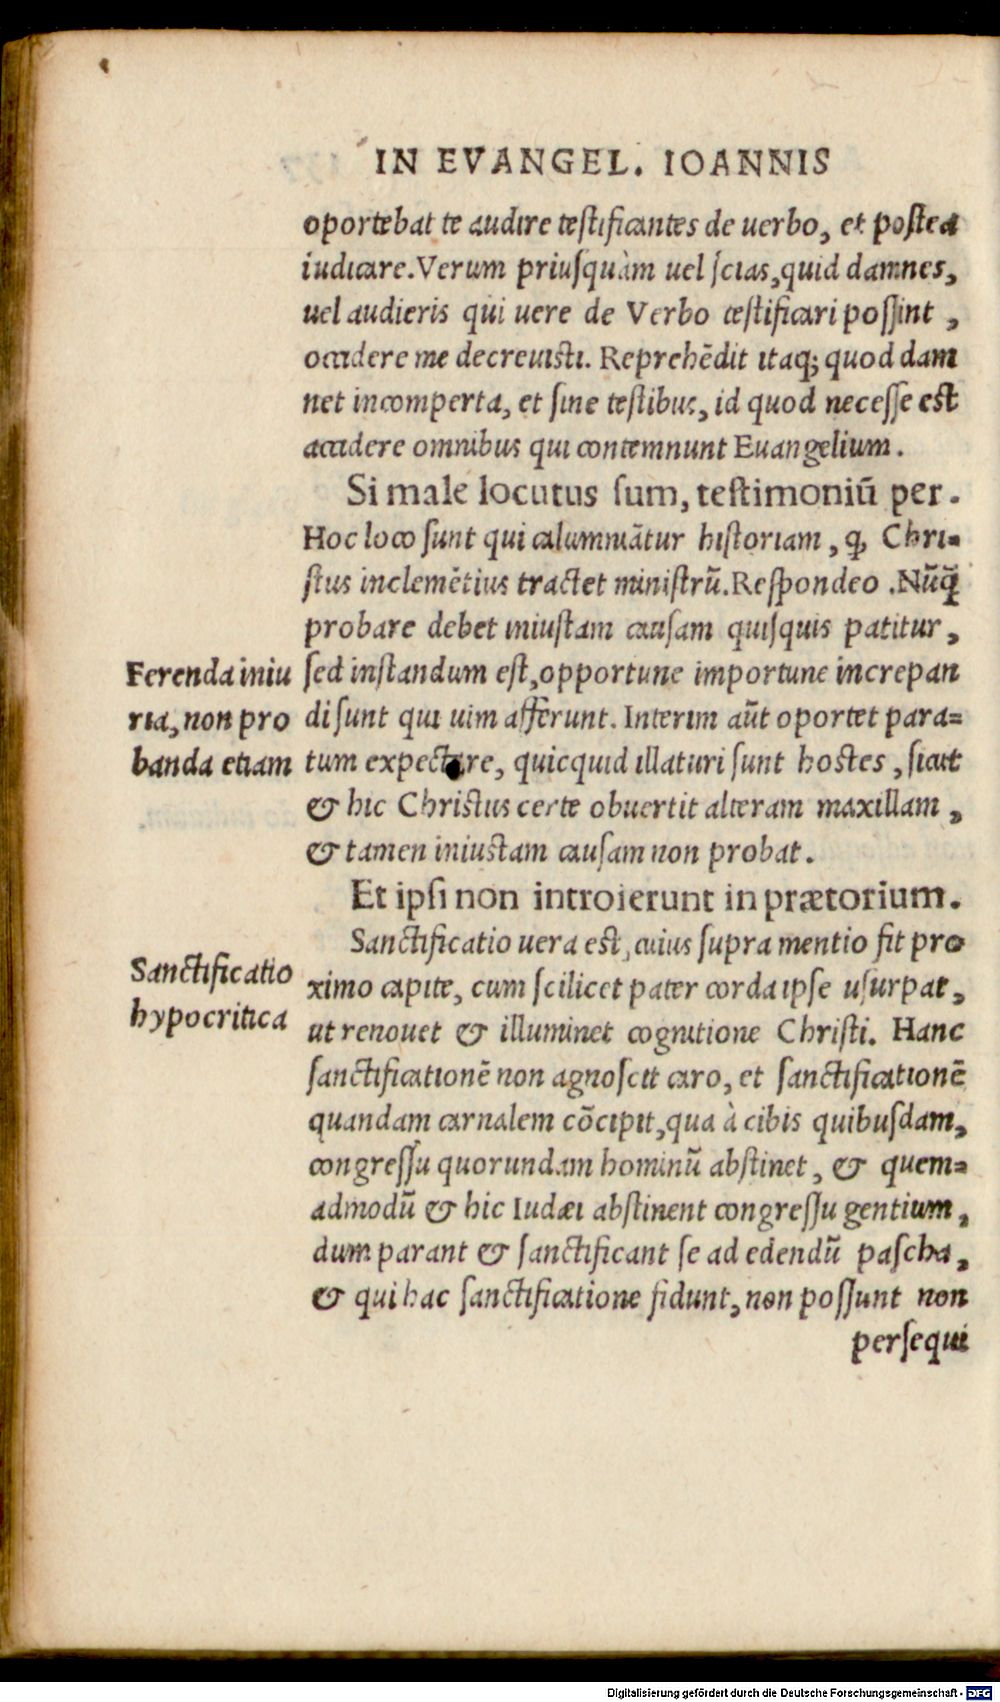 IN EVANGEL. IOANNIS
oportebat te audire testificantes de uerbo, et postea
iudicare. Verum priusquàm uel scias, quid damnes,
uel audieris qui uere de Verbo testificari possint,
occidere me decreuisti. Reprehēdit itaq; quod dam
net incomperta, et sine testibus, id quod necesse est
accidere omnibus qui contemnunt Euangelium.
Si male locutus sum, testimoniū per.
Hoc loco sunt qui calumniātur historiam, ꝙ Chri-
stus inclemētius tractet ministrū. Respondeo. Nūꝗ̄
probare debet iniustam causam quisquis patitur,
sed instandum est, opportune importune increpan
di sunt qui uim afferunt. Interim aūt oportet para-
tum expectare, quicquid illaturi sunt hostes, sicut
& hic Christus certe obuertit alteram maxillam,
& tamen iniustam causam non probat.
Ferenda iniu
ria, non pro
banda etiam
Et ipsi non introierunt in prætorium.
Sanctificatio uera est, cuius supra mentio fit pro
ximo capite, cum scilicet pater corda ipse usurpat,
ut renouet & illuminet cognitione Christi. Hanc
sanctificationē non agnoscit caro, et sanctificationē
quandam carnalem cōcipit, qua à cibis quibusdam,
congressu quorundam hominū abstinet, & quem-
admodū & hic Iudæi abstinent congressu gentium,
dum parant & sanctificant se ad edendū pascha,
& qui hac sanctificatione fidunt, non possunt non
persequi
Sanctificatio
hypocritica
Digitalisierung gefördert durch die Deutsche Forschungsgemeinschaft - DFG